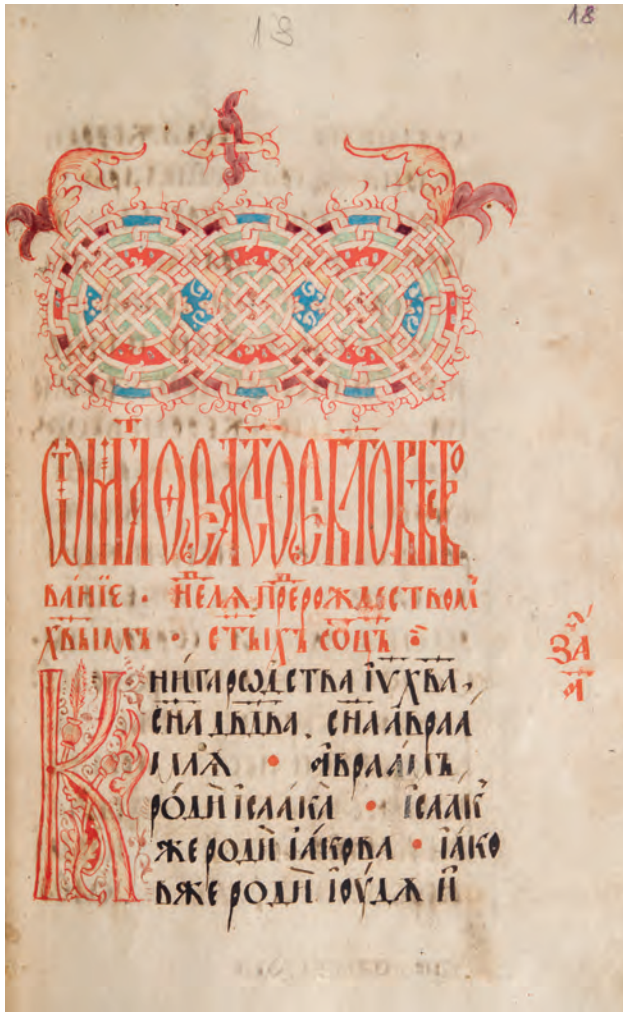 18
18
Ѿ МАѲЕѦ СТ҃ОЕ БЛ҃ГОВѢСТВО
ВАНІЕ · НЕ҃ЛѦ ПРЕ РОЖДЕСТВОМ
Х҃ВЫМЪ · СТ҃ЫХЪ Ѻ҃ЦЪ ·
ЗА҃
А҃
КНИ́ГА РѠДСТВА ІУ Х҃ВА,
СН҃А ДВ҃ДВА, СН҃А АВРАА
МЛѦ · АВРАА́МЪ,
РОДЍ ІСАА́КА · ІСАА́К
ЖЕ РОДЍ ІА́КОВА · ІА́КО
ВЖЕ РОДЍ ІОУ́ДѦ Ѝ